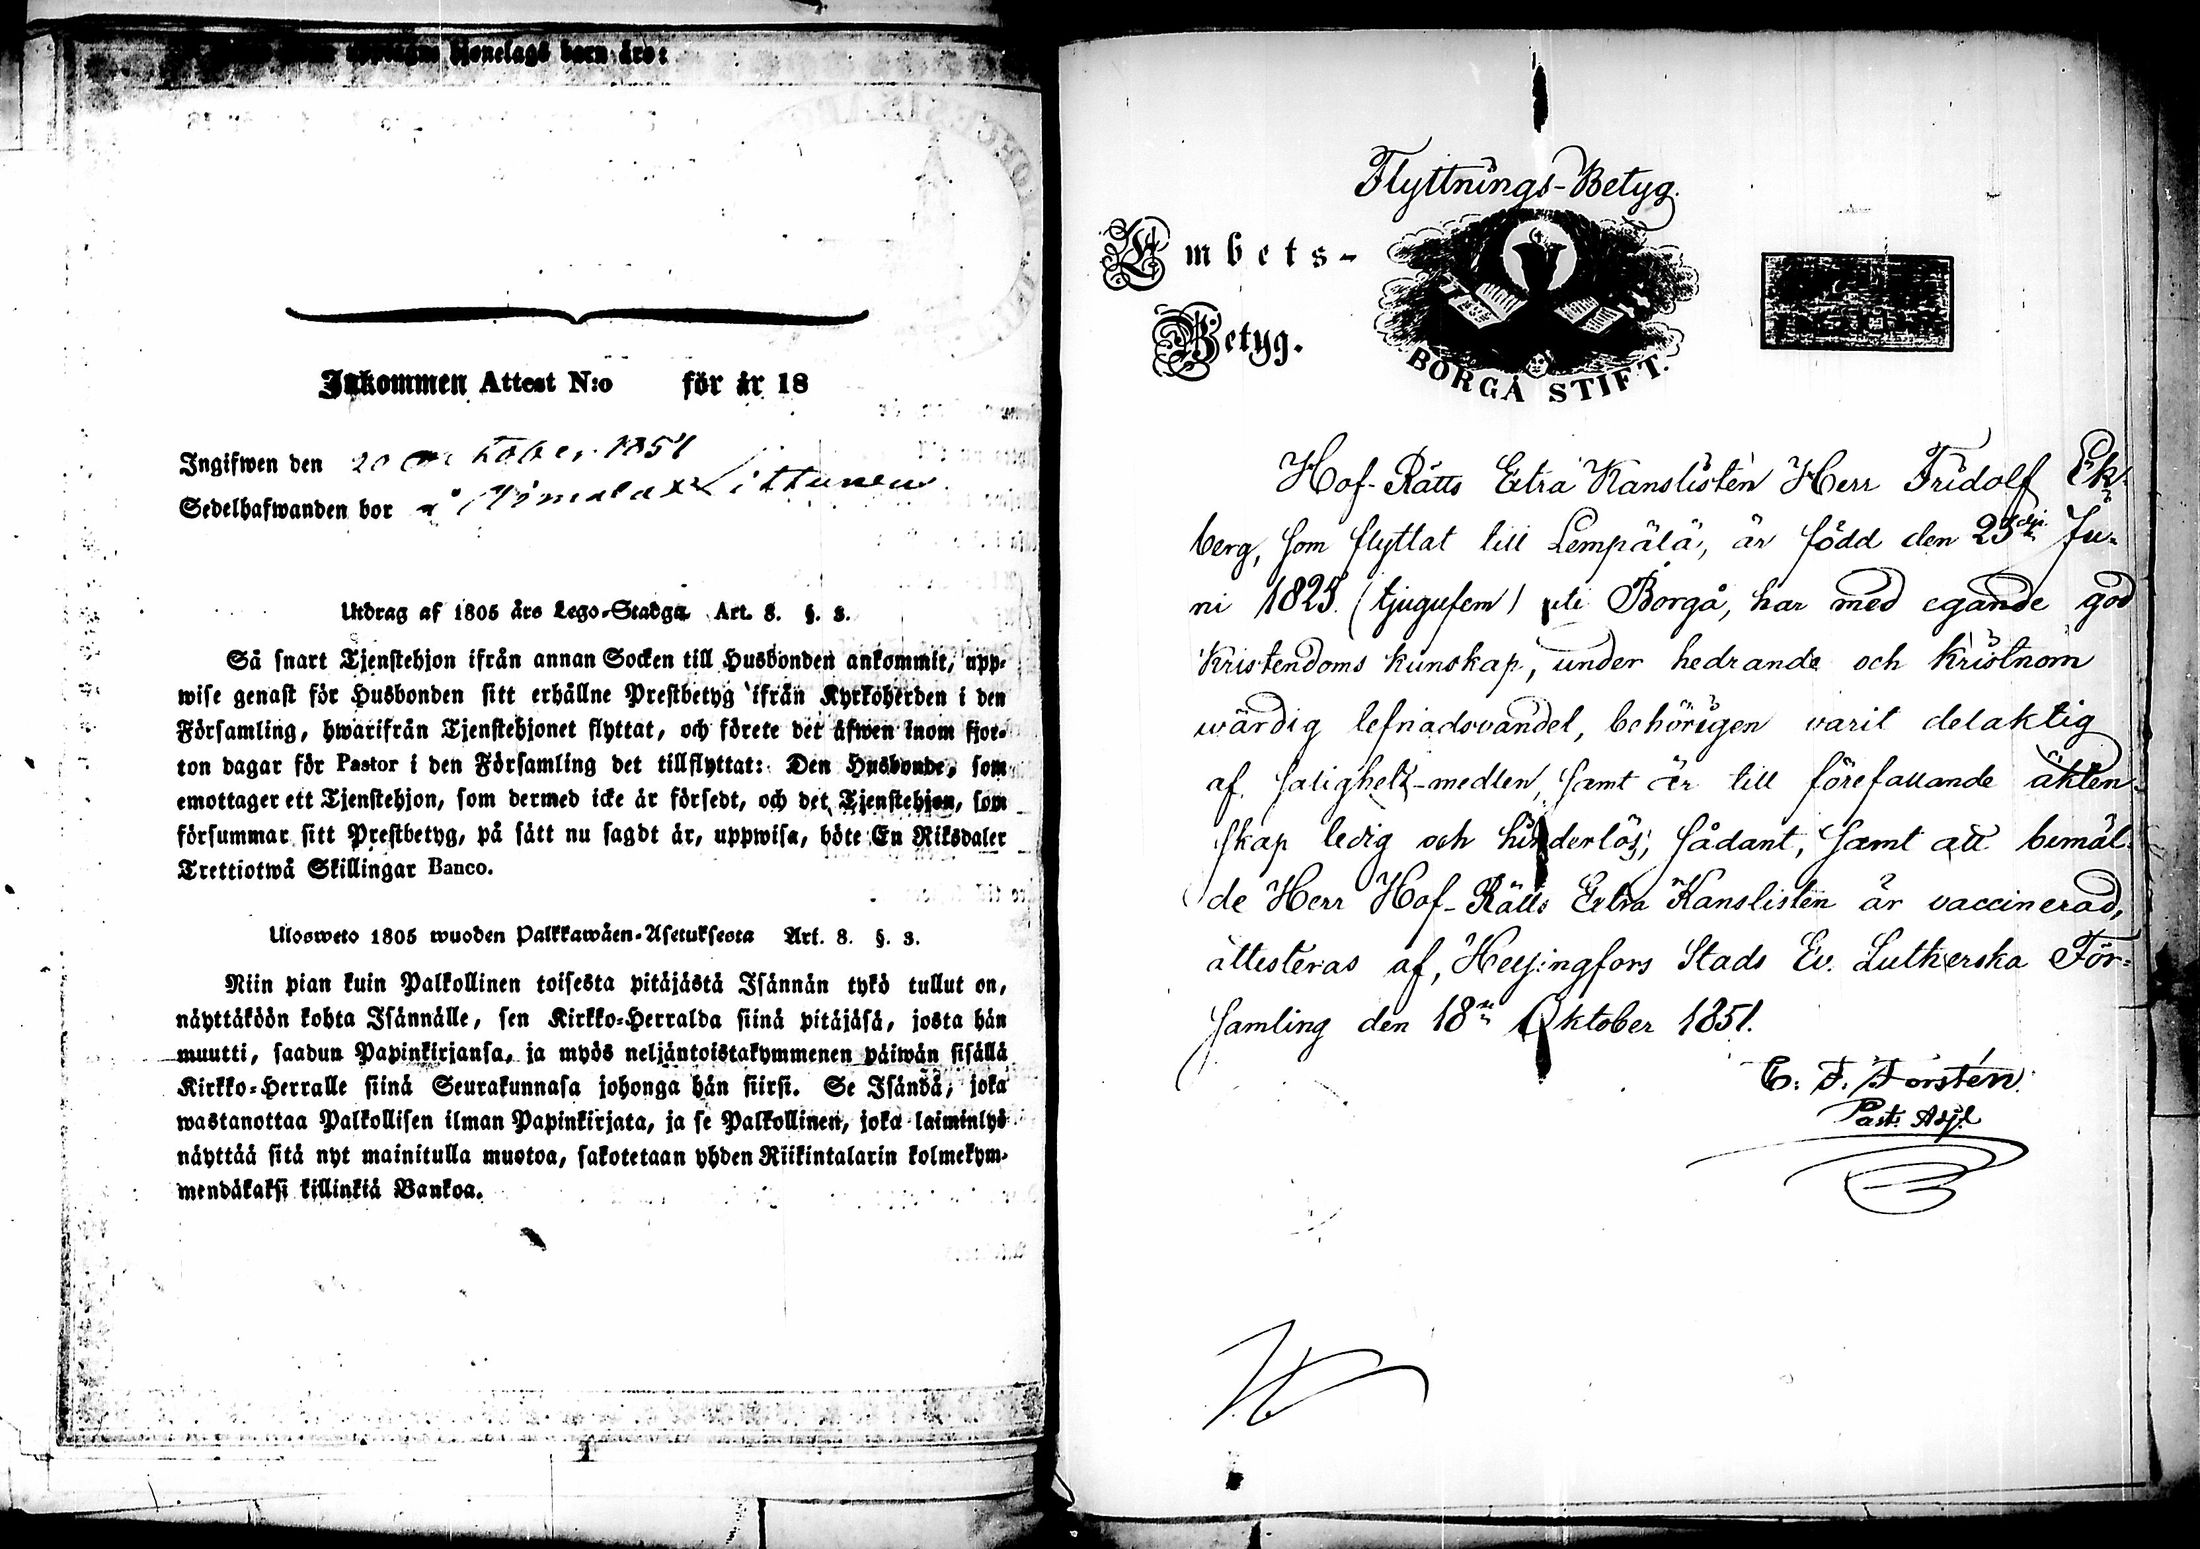 Hjonelags barn äro:
Inkommen Attest N:o för år 18
Ingifwen den 20 October 1851
Sedelhafwanden bor å
Utdrag af 1805 års Lego-Stadga Art. 8. §. 3.
Så snart Tjenstehjon ifrån annan Socken till Husbonden ankommit, upp-
wise genast för Husbonden sitt erhållne Prestbetyg ifrån Kyrkoherden i den
Församling, hwarifrån Tjenstehjonet flyttat, och förete det äfwen inom fjor-
ton dagar för Pastor i den Församling det tillflyttat: Den Husbonde, som
emottager ett Tjenstehjon, som dermed icke är försedt, och det Tjenstehjon, som
försummar sitt Prestbetyg, på sätt nu sagdt är, uppwisa, böte En Riksdaler
Trettiotwå Skillingar Banco.
Ulosweto 1805 wuoden Palkkawäen-Asetuksesta Art. 8. §. 3.
Niin pian kuin Palkollinen toisesta pitäjästä Isännän tykö tullut on,
näyttäköön kohta Isännälle, sen Kirkko-Herralda siinä pitäjäsä, josta hän
muutti, saadun Papinkirjansa, ja myös neljäntoistakymmenen päiwän sisällä
Kirkko-Herralle siinä Seurakunnasa johonga hän siirsi. Se Isändä, joka
wastanottaa Palkollisen ilman Papinkirjata, ja se Palkollinen, joka laiminlyö
näyttää sitä nyt mainitulla muotoa, sakotetaan yhden Riikintalarin kolmekym-
mendäkaksi killinkiä Bankoa.
Flyttnings-Betyg.
Embets-
Betyg.
BORGÅ STIFT.
Hof-Rätts Extra Kanslisten Herr Fridolf Ek-
berg, som flyttat till Lempälä, är född den 25 Ju-
ni 1825. (tjugufem) uti Borgå, har med egande god
Kristendoms kunskap, under hedrande och kristnom
wärdig lefnadsvandel, behörigen varit delaktig
af salighets-medlen, samt är till förefallande äkten-
skap ledig och hinderlös; sådant, samt att bemäl-
de Herr Hof-Rätts Extra Kanslisten är vaccinerad,
attesteras af, Helsingfors Stads Ev. Lutherska För-
samling den 18 Oktober 1851.
C. F. Forstén.
Past. Adj.